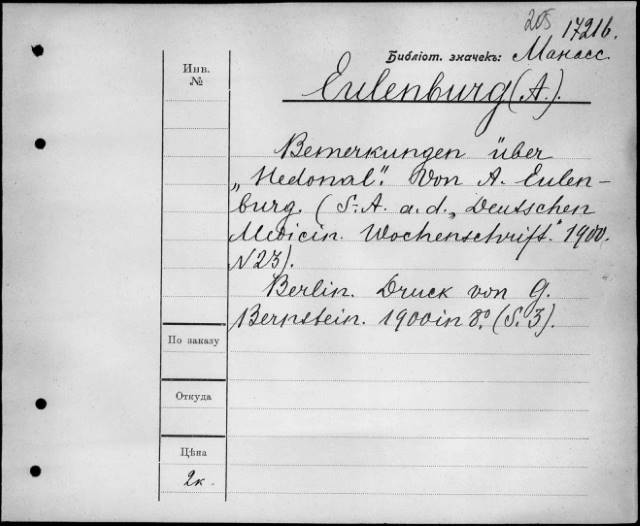 205 1721б.
Библіот. значекъ: Манасс
Инв.
№
Eulenburg (A.).
Bemerkungen über
„Hedonal“. Von A. Eulen-
burg. (S.-A. a. d. „Deutschen
Medicin. Wochenschrift.“ 1900.
N23).
Berlin. Druck von G.
Bernstein. 1900 in 8.º (S. 3).
По заказу
Откуда
Цѣна
2к.